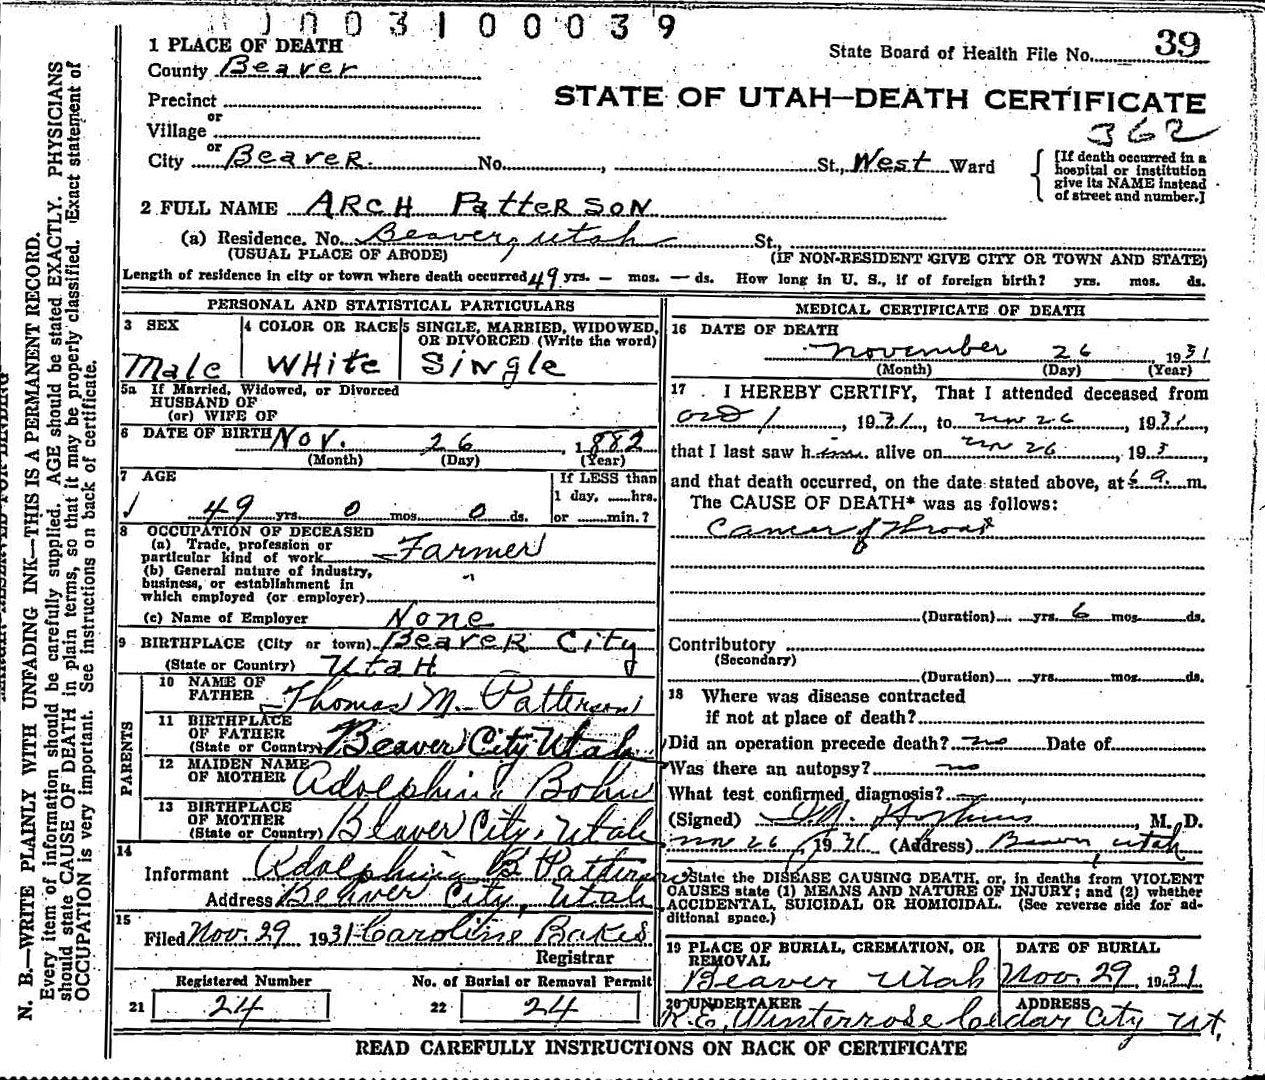 0003100039
1 PLACE OF DEATH
State Board of Health File No. 39
County Beaver
STATE OF UTAH—DEATH CERTIFICATE
Precinct
or
362
Village
or
City Beaver. No. , St., West Ward
[If death occurred in a
hospital or institution
give its NAME instead
of street and number.]
2 FULL NAME ARCH PATTERSON
(a) Residence. No. Beaver, Utah St.,
(USUAL PLACE OF ABODE) (IF NON-RESIDENT GIVE CITY OR TOWN AND STATE)
Length of residence in city or town where death occurred 49 yrs. — mos. — ds. How long in U. S., if of foreign birth? yrs. mos. ds.
PERSONAL AND STATISTICAL PARTICULARS
3 SEX
Male
4 COLOR OR RACE
White
5 SINGLE, MARRIED, WIDOWED,
OR DIVORCED (Write the word)
Single
5a If Married, Widowed, or Divorced
HUSBAND OF
(or) WIFE OF
6 DATE OF BIRTH Nov. 26, 1882
(Month) (Day) (Year)
7 AGE
49 yrs. 0 mos. 0 ds.
If LESS than
1 day, ......hrs.
or .......min.?
8 OCCUPATION OF DECEASED
(a) Trade, profession or
particular kind of work Farmer
(b) General nature of industry,
business, or establishment in
which employed (or employer)
(c) Name of Employer None
9 BIRTHPLACE (City or town) Beaver City
(State or Country) Utah
PARENTS
10 NAME OF
FATHER Thomas M. Patterson
11 BIRTHPLACE
OF FATHER
(State or Country) Beaver City Utah
12 MAIDEN NAME
OF MOTHER Adolphina Bohn
13 BIRTHPLACE
OF MOTHER
(State or Country) Beaver City, Utah
14
Informant Adolphina B Patterson
Address Beaver City, Utah
15
Filed Nov. 29 1931 Caroline Bakes
Registrar
Registered Number
21 24
No. of Burial or Removal Permit
22 24
MEDICAL CERTIFICATE OF DEATH
16 DATE OF DEATH
November 26 1931
(Month) (Day) (Year)
17 I HEREBY CERTIFY, That I attended deceased from
1, 1931, to Nov 26, 1931,
that I last saw him alive on Nov 26, 193
and that death occurred, on the date stated above, at 9 m.
The CAUSE OF DEATH* was as follows:
Cancer of Throat
(Duration) yrs. 6 mos. ds.
Contributory
(Secondary)
(Duration) yrs. mos. ds.
18 Where was disease contracted
if not at place of death?
Did an operation precede death? no Date of
Was there an autopsy? no
What test confirmed diagnosis?
(Signed) M. D.
Nov 26, 1931 (Address) Beaver, Utah
*State the DISEASE CAUSING DEATH, or, in deaths from VIOLENT
CAUSES state (1) MEANS AND NATURE OF INJURY; and (2) whether
ACCIDENTAL, SUICIDAL OR HOMICIDAL. (See reverse side for ad-
ditional space.)
19 PLACE OF BURIAL, CREMATION, OR
REMOVAL
Beaver Utah
DATE OF BURIAL
Nov. 29, 1931
20 UNDERTAKER
R.E. Winterrose
ADDRESS
Cedar City Ut.
READ CAREFULLY INSTRUCTIONS ON BACK OF CERTIFICATE
N. B.—WRITE PLAINLY WITH UNFADING INK—THIS IS A PERMANENT RECORD.
Every item of information should be carefully supplied. AGE should be stated EXACTLY. PHYSICIANS
should state CAUSE OF DEATH in plain terms, so that it may be properly classified. Exact statement of
OCCUPATION is very important. See instructions on back of certificate.